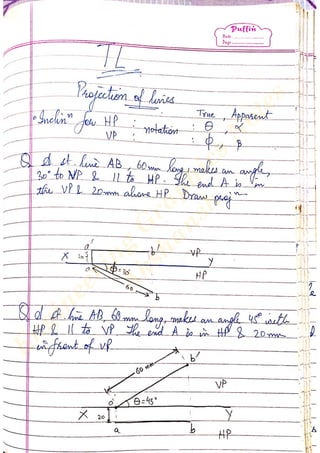 Puffin
Date
Page
TL
Projection of lines
True, Apparent
"Inclinⁿ for HP : notation : θ, α
VP : : ϕ, β
Q A st. line AB, 60mm long, makes an angle,
30° to VP & 11 to HP. The end A is in
the VP & 20mm above HP Draw projⁿ
a' b' VP
X 20 Y
a ϕ=30° HP
60
b
Q A st. line AB, 60mm long, makes an angle 45° with
HP & 11 to VP The end A is in HP & 20mm
in front of VP.
60 mm b'
VP
a' θ=45°
X Y
20
a b HP